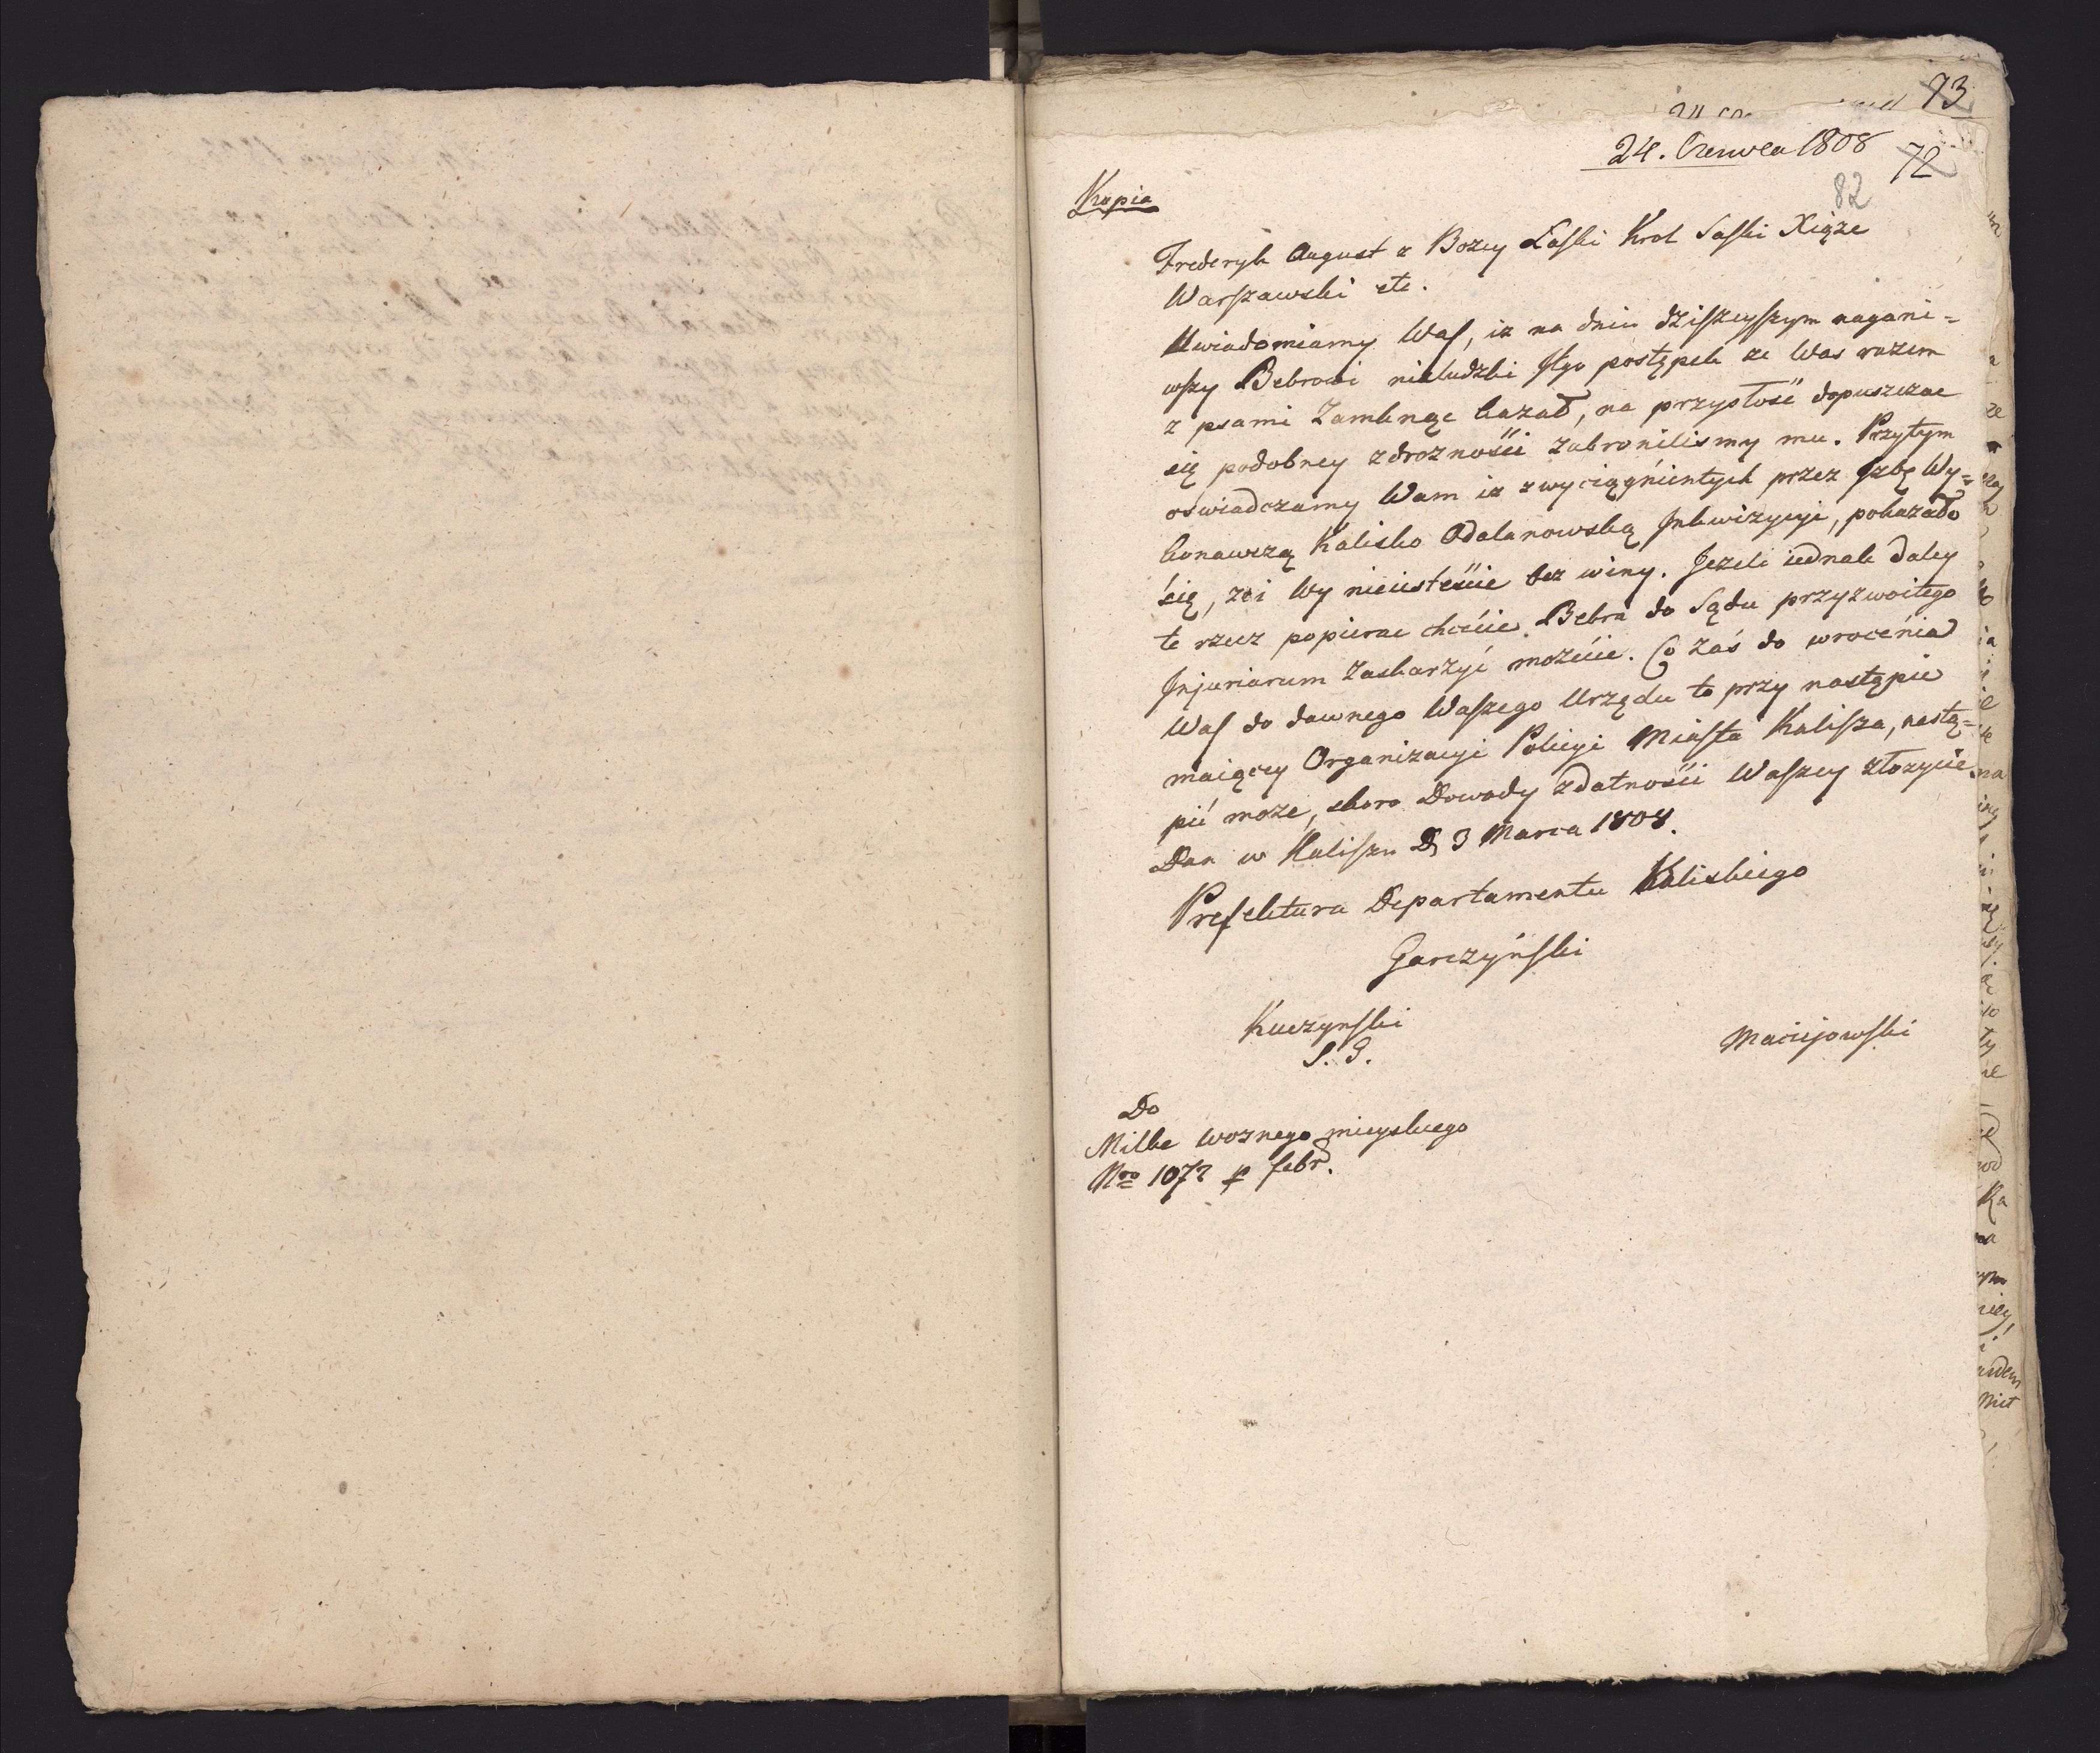 73
24. Czerwca 1808
72
82
Kopia
Frederyk August z Bozey Łaski Krol Saski Xiąże
Warszawski etc.
Uwiadomiamy Was, iz na dniu dzisieyszym nagani=
wszy Bebrowi nieludzki Jego postępek ze Was razem
z psami Zamknąc kazał, na przyszłość dopuszczac
się podobney zdrozności zabronilismy mu. Przytym
oswiadczamy Wam iz z wyciągnientych przez Izbę Wy=
konawszą Kalisko Odalanowską Inkwizycyi, pokazało
się, ze i Wy nieiesteście bez winy. Jezeli iednak daley
te rzecz popierac chcecie Bebra do Sądu przyzwoitego
Injuriarum Zaskarzyć możecie. Co Zaś do wrocenia
Was do dawnego Waszego Urzędu to przy nastąpić
maiącey Organizacyi Policyi Miasta Kalisza, nastą=
pić może, skoro Dowody zdatności Waszey złozycie.
Dan w Kaliszu D. 3 Marca 1808.
Prefektura Departamentu Kaliskiego
Garczyński
Kuczynski
S. G.
Maciejowski
Do
Milke Woznego mieyskiego
Nro 1072 p febr.